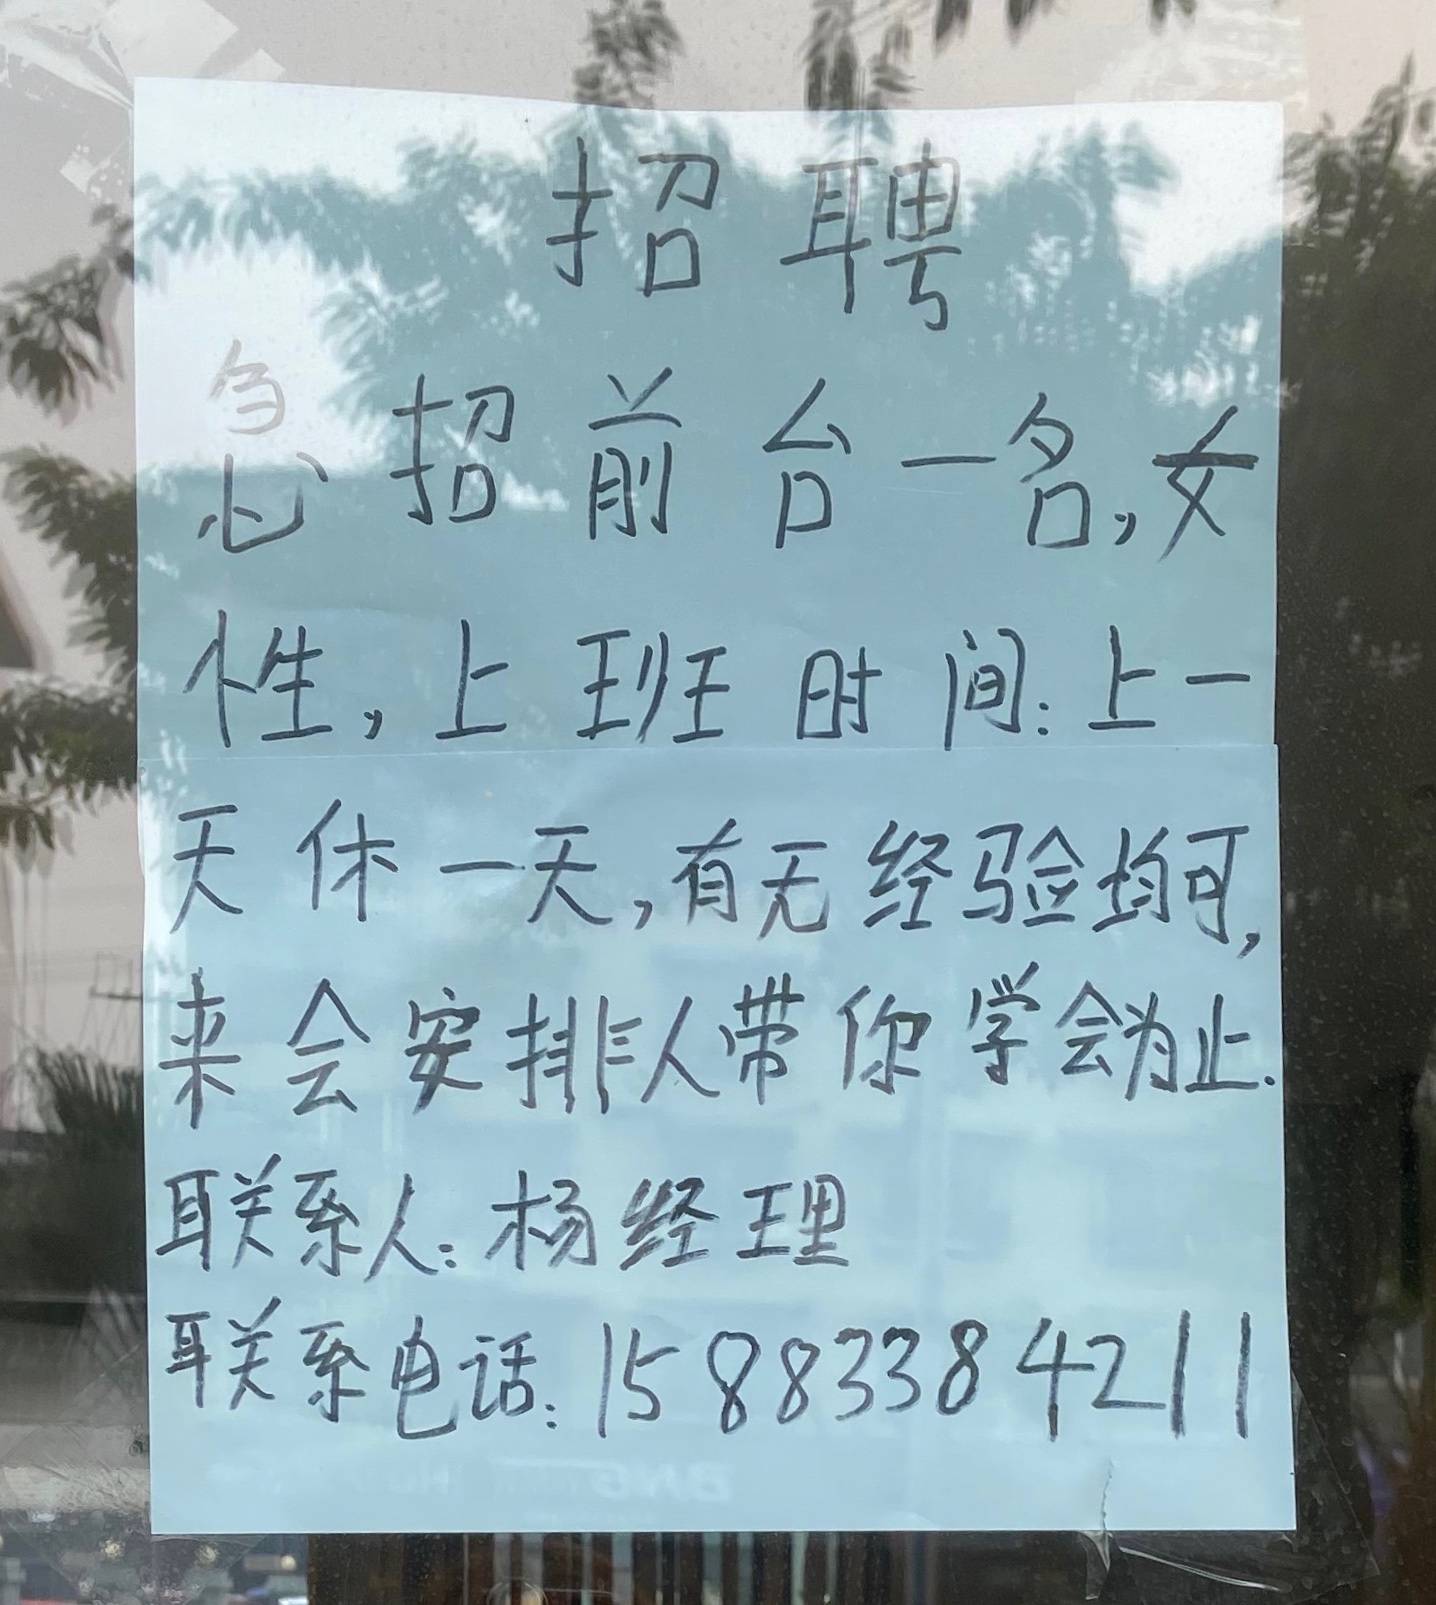 招聘
急招前台一名,女
性,上班时间:上一
天休一天,有无经验均可,
来会安排人带你学会为止.
联系人:杨经理
联系电话:15883384211